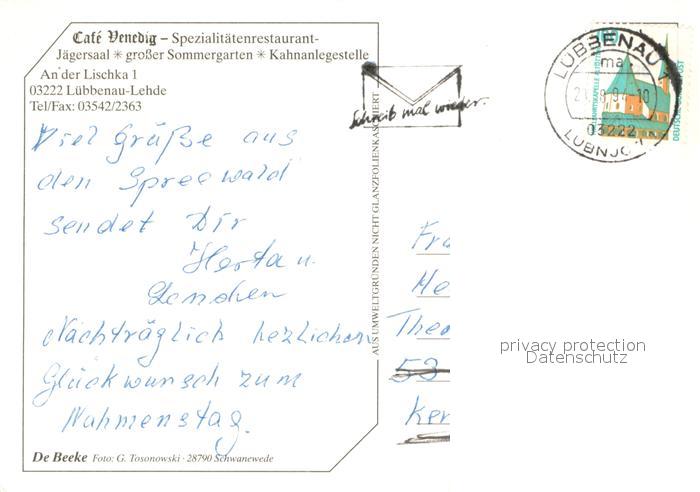 Café Venedig – Spezialitätenrestaurant-
Jägersaal ✳ großer Sommergarten ✳ Kahnanlegestelle
An der Lischka 1
03222 Lübbenau-Lehde
Tel/Fax: 03542/2363
Viel Grüße aus
den Spreewald
sendet Dir
Herta u.
Lenchen
Nachträglich herzlichen
Glückwunsch zum
Nahmenstag.
De Beeke Foto: G. Tosonowski · 28790 Schwanewede
AUS UMWELTGRÜNDEN NICHT GLANZFOLIENKASCHIERT
Schreib mal wieder.
LÜBBENAU 1
ma
94-10
03222
100
DEUTSCHE BUNDESPOST
Fra
Me
Theo
53
Ker
privacy protection
Datenschutz